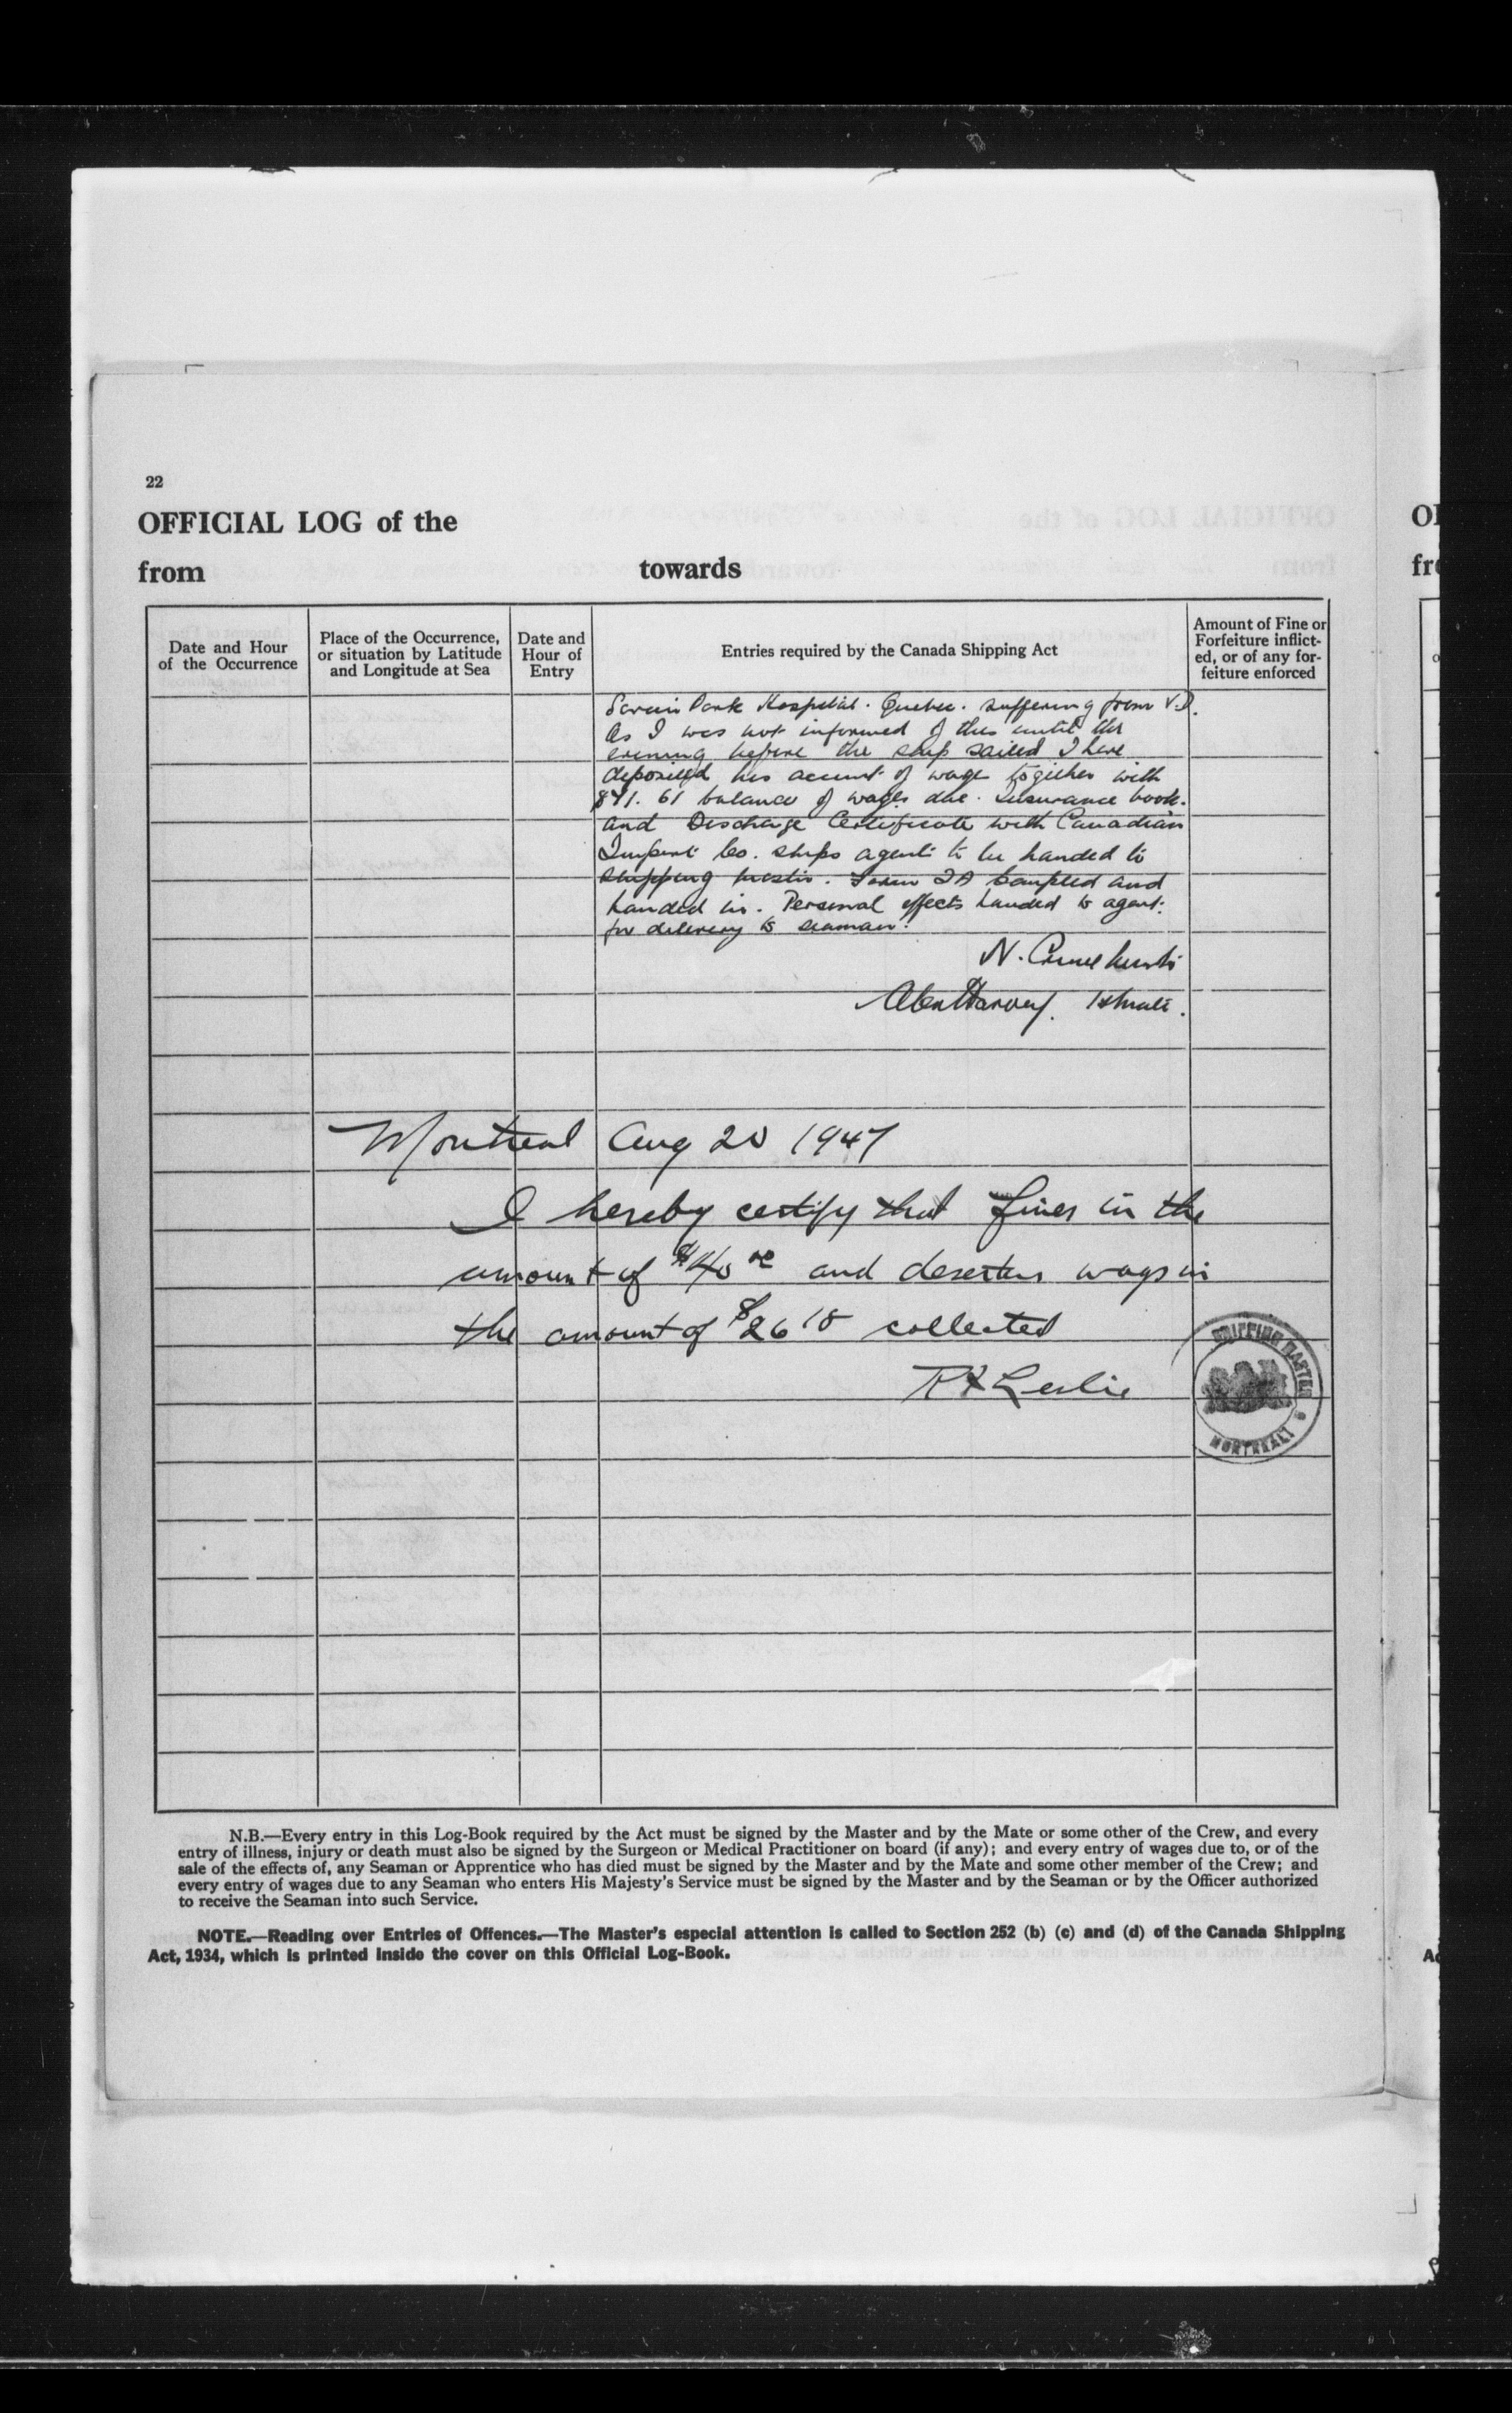 22
OFFICIAL LOG of the
from towards
Date and Hour of the Occurrence
Place of the Occurrence, or situation by Latitude and Longitude at Sea
Date and Hour of Entry
Entries required by the Canada Shipping Act
Amount of Fine or Forfeiture inflicted, or of any forfeiture enforced
Park Hospital. Quebec. suffering from V.D.
As I was not informed of this until the
evening before the ship sailed I have
deposited his account of wage together with
61 balance of wages due. Insurance book.
and Discharge Certificate with Canadian
Import Co. ships agent to be handed to
shipping master. Form IA completed and
handed in. Personal effects handed to agent.
for delivery to seaman.
N.
Harvey. 1st mate.
Montreal Aug 20 1947
I hereby certify that fines in the
amount of and deserters wages in
the amount of $26 18 collected
Leslie
SHIPPING MASTER
MONTREAL
N.B.—Every entry in this Log-Book required by the Act must be signed by the Master and by the Mate or some other of the Crew, and every
entry of illness, injury or death must also be signed by the Surgeon or Medical Practitioner on board (if any); and every entry of wages due to, or of the
sale of the effects of, any Seaman or Apprentice who has died must be signed by the Master and by the Mate and some other member of the Crew; and
every entry of wages due to any Seaman who enters His Majesty's Service must be signed by the Master and by the Seaman or by the Officer authorized
to receive the Seaman into such Service.
NOTE.—Reading over Entries of Offences.—The Master's especial attention is called to Section 252 (b) (c) and (d) of the Canada Shipping
Act, 1934, which is printed inside the cover on this Official Log-Book.